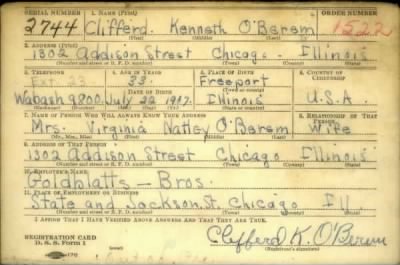 SERIAL NUMBER 1. NAME (Print) ORDER NUMBER
2744 Clifford Kenneth O'Berem 1522
(First) (Middle) (Last)
2. ADDRESS (Print)
1302 Addison Street Chicago Illinois
(Number and street or R. F. D. number) (Town) (County) (State)
3. TELEPHONE 4. AGE IN YEARS 5. PLACE OF BIRTH 6. COUNTRY OF CITIZENSHIP
Ext. 23 33 Freeport
DATE OF BIRTH
Wabash 9200 July 1917 Illinois U.S.A.
(Exchange) (Number) (Mo.) (Day) (Yr.) (State or country)
7. NAME OF PERSON WHO WILL ALWAYS KNOW YOUR ADDRESS 8. RELATIONSHIP OF THAT PERSON
Mrs. Virginia O'Berem Wife
(Mr., Mrs., Miss) (First) (Middle) (Last)
9. ADDRESS OF THAT PERSON
1302 Addison Street Chicago Illinois
(Number and street or R. F. D. number) (Town) (County) (State)
10. EMPLOYER'S NAME
Goldblatts - Bros.
11. PLACE OF EMPLOYMENT OR BUSINESS
State and Jackson St. Chicago Ill
(Number and street or R. F. D. number) (Town) (County) (State)
I AFFIRM THAT I HAVE VERIFIED ABOVE ANSWERS AND THAT THEY ARE TRUE.
REGISTRATION CARD
D. S. S. Form 1
Clifford K. O'Berem
(Registrant's signature)